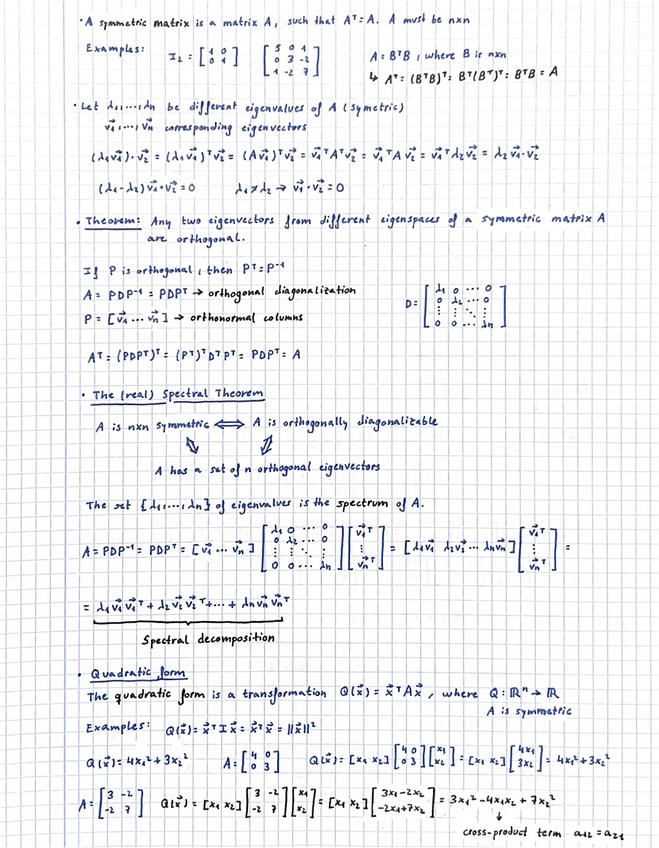 · A symmetric matrix is a matrix A, such that Aᵀ = A. A must be nxn
Examples: I₂ = [1 0; 0 1] [5 0 1; 0 3 -2; 1 -2 7] A = BᵀB, where B is nxn
↳ Aᵀ = (BᵀB)ᵀ = Bᵀ(Bᵀ)ᵀ = BᵀB = A
· Let λ₁,...,λn be different eigenvalues of A (symetric)
v⃗₁,...,v⃗n corresponding eigenvectors
(λ₁v⃗₁)·v⃗₂ = (λ₁v⃗₁)ᵀv⃗₂ = (Av⃗₁)ᵀv⃗₂ = v⃗₁ᵀAᵀv⃗₂ = v⃗₁ᵀAv⃗₂ = v⃗₁ᵀλ₂v⃗₂ = λ₂v⃗₁·v⃗₂
(λ₁-λ₂)v⃗₁·v⃗₂ = 0 λ₁≠λ₂ → v⃗₁·v⃗₂ = 0
· Theorem: Any two eigenvectors from different eigenspaces of a symmetric matrix A
are orthogonal.
If P is orthogonal, then Pᵀ = P⁻¹
A = PDP⁻¹ = PDPᵀ → orthogonal diagonalization
P = [v⃗₁ ... v⃗n] → orthonormal columns D = [λ₁ 0 ... 0; 0 λ₂ ... 0; ⋮ ⋮ ⋱ ⋮; 0 0 ... λn]
Aᵀ = (PDPᵀ)ᵀ = (Pᵀ)ᵀDᵀPᵀ = PDPᵀ = A
· The (real) Spectral Theorem
A is nxn symmetric ⟺ A is orthogonally diagonalizable
A has a set of n orthogonal eigenvectors
The set {λ₁,...,λn} of eigenvalues is the spectrum of A.
A = PDP⁻¹ = PDPᵀ = [v⃗₁ ... v⃗n] [λ₁ 0 ... 0; 0 λ₂ ... 0; ⋮ ⋮ ⋱ ⋮; 0 0 ... λn] [v⃗₁ᵀ; ⋮; v⃗nᵀ] = [λ₁v⃗₁ λ₂v⃗₂ ... λnv⃗n] [v⃗₁ᵀ; ⋮; v⃗nᵀ] =
= λ₁v⃗₁v⃗₁ᵀ + λ₂v⃗₂v⃗₂ᵀ + ... + λnv⃗nv⃗nᵀ
Spectral decomposition
· Quadratic form
The quadratic form is a transformation Q(x⃗) = x⃗ᵀAx⃗, where Q: ℝⁿ → ℝ
A is symmetric
Examples: Q(x⃗) = x⃗ᵀIx⃗ = x⃗ᵀx⃗ = ||x⃗||²
Q(x⃗) = 4x₁² + 3x₂² A = [4 0; 0 3] Q(x⃗) = [x₁ x₂] [4 0; 0 3] [x₁; x₂] = [x₁ x₂] [4x₁; 3x₂] = 4x₁² + 3x₂²
A = [3 -2; -2 7] Q(x⃗) = [x₁ x₂] [3 -2; -2 7] [x₁; x₂] = [x₁ x₂] [3x₁-2x₂; -2x₁+7x₂] = 3x₁² - 4x₁x₂ + 7x₂²
↓
cross-product term a₁₂ = a₂₁